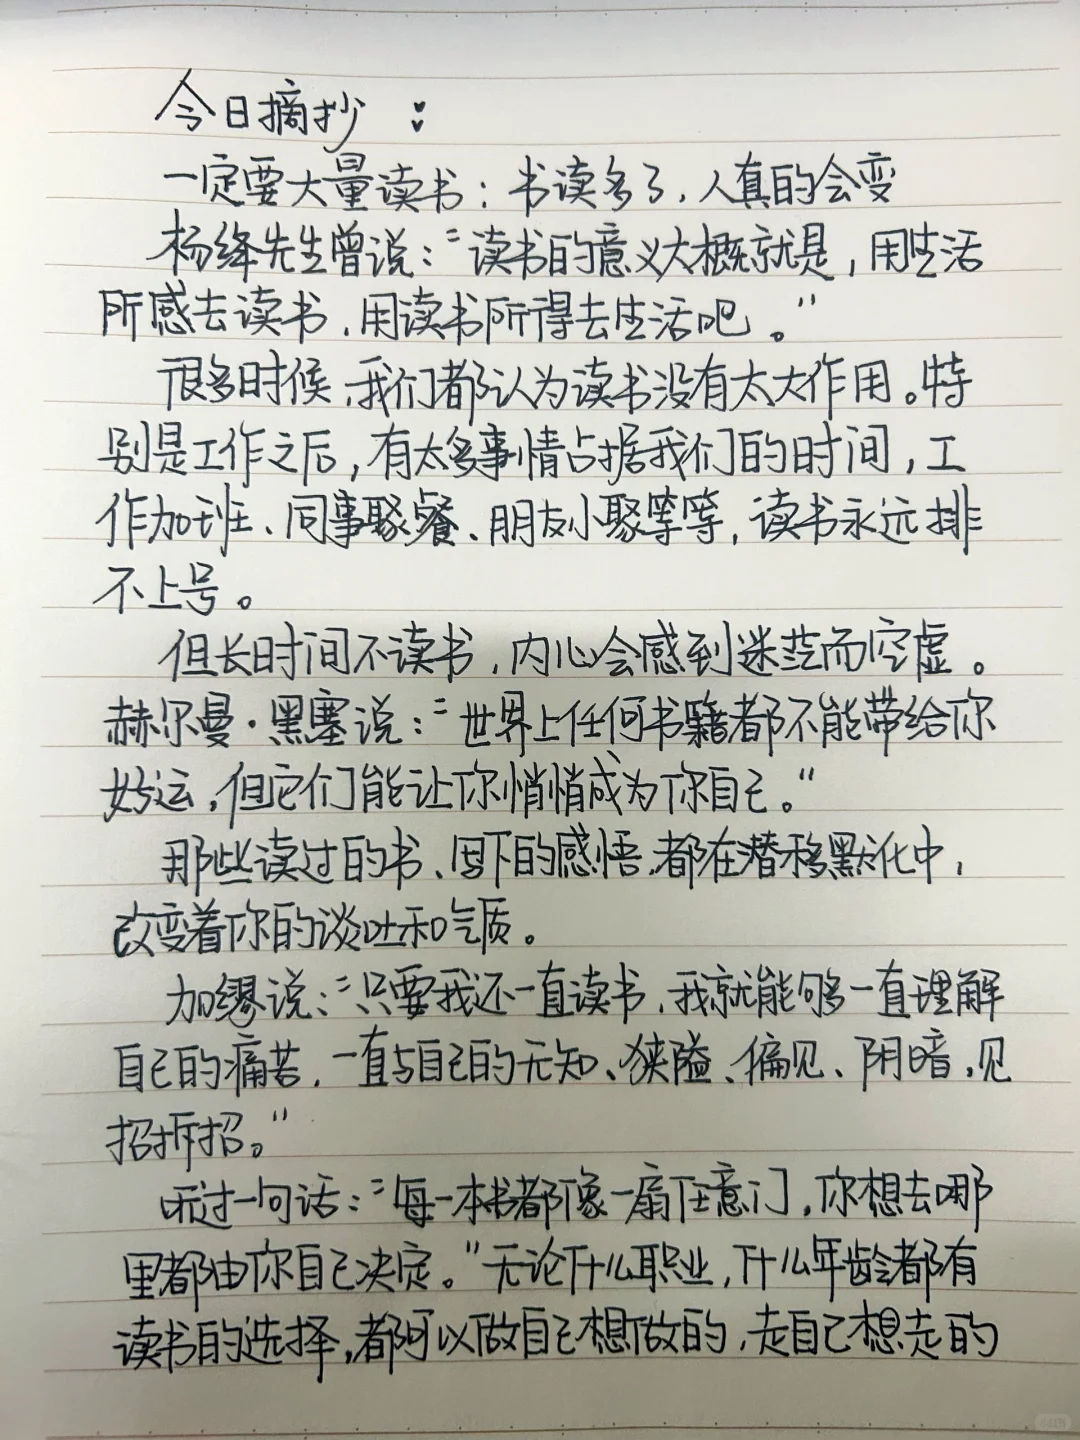 今日摘抄
一定要大量读书：书读多了，人真的会变
杨绛先生曾说：“读书的意义大概就是，用生活
所感去读书，用读书所得去生活吧。”
很多时候，我们都认为读书没有太大作用。特
别是工作之后，有太多事情占据我们的时间，工
作加班、同事聚餐、朋友小聚等等，读书永远排
不上号。
但长时间不读书，内心会感到迷茫而空虚。
赫尔曼·黑塞说：“世界上任何书籍都不能带给你
好运，但它们能让你悄悄成为你自己。”
那些读过的书、写下的感悟，都在潜移默化中，
改变着你的谈吐和气质。
加缪说：“只要我还一直读书，我就能够一直理解
自己的痛苦，一直与自己的无知、狭隘、偏见、阴暗，见
招拆招。”
听过一句话：“每一本书都像一扇任意门，你想去哪
里都由你自己决定。”无论什么职业，什么年龄都有
读书的选择，都可以做自己想做的，走自己想走的